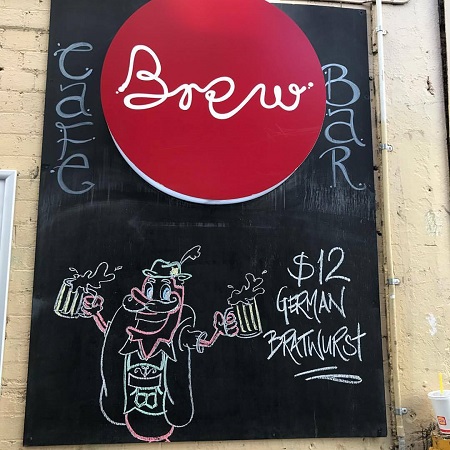 Cafe
Brew
BaR
$12
GERMAN
BRATWURST